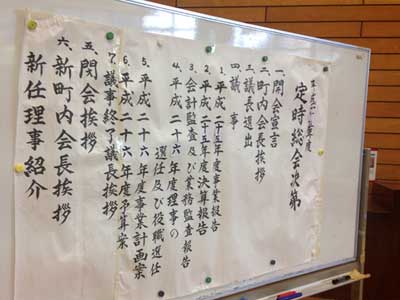 定時総会次第
一、開会宣言
二、町内会長挨拶
三、議長選出
四、議事
1、平成二十五年度事業報告
2、平成二十五年度決算報告
3、会計監査及び業務監査報告
4、平成二十六年度理事の
選任及び役職選任
5、平成二十六年度事業計画案
6、平成二十六年度予算案
7、議事終了議長挨拶
五、閉会挨拶
六、新町内会長挨拶
新任理事紹介